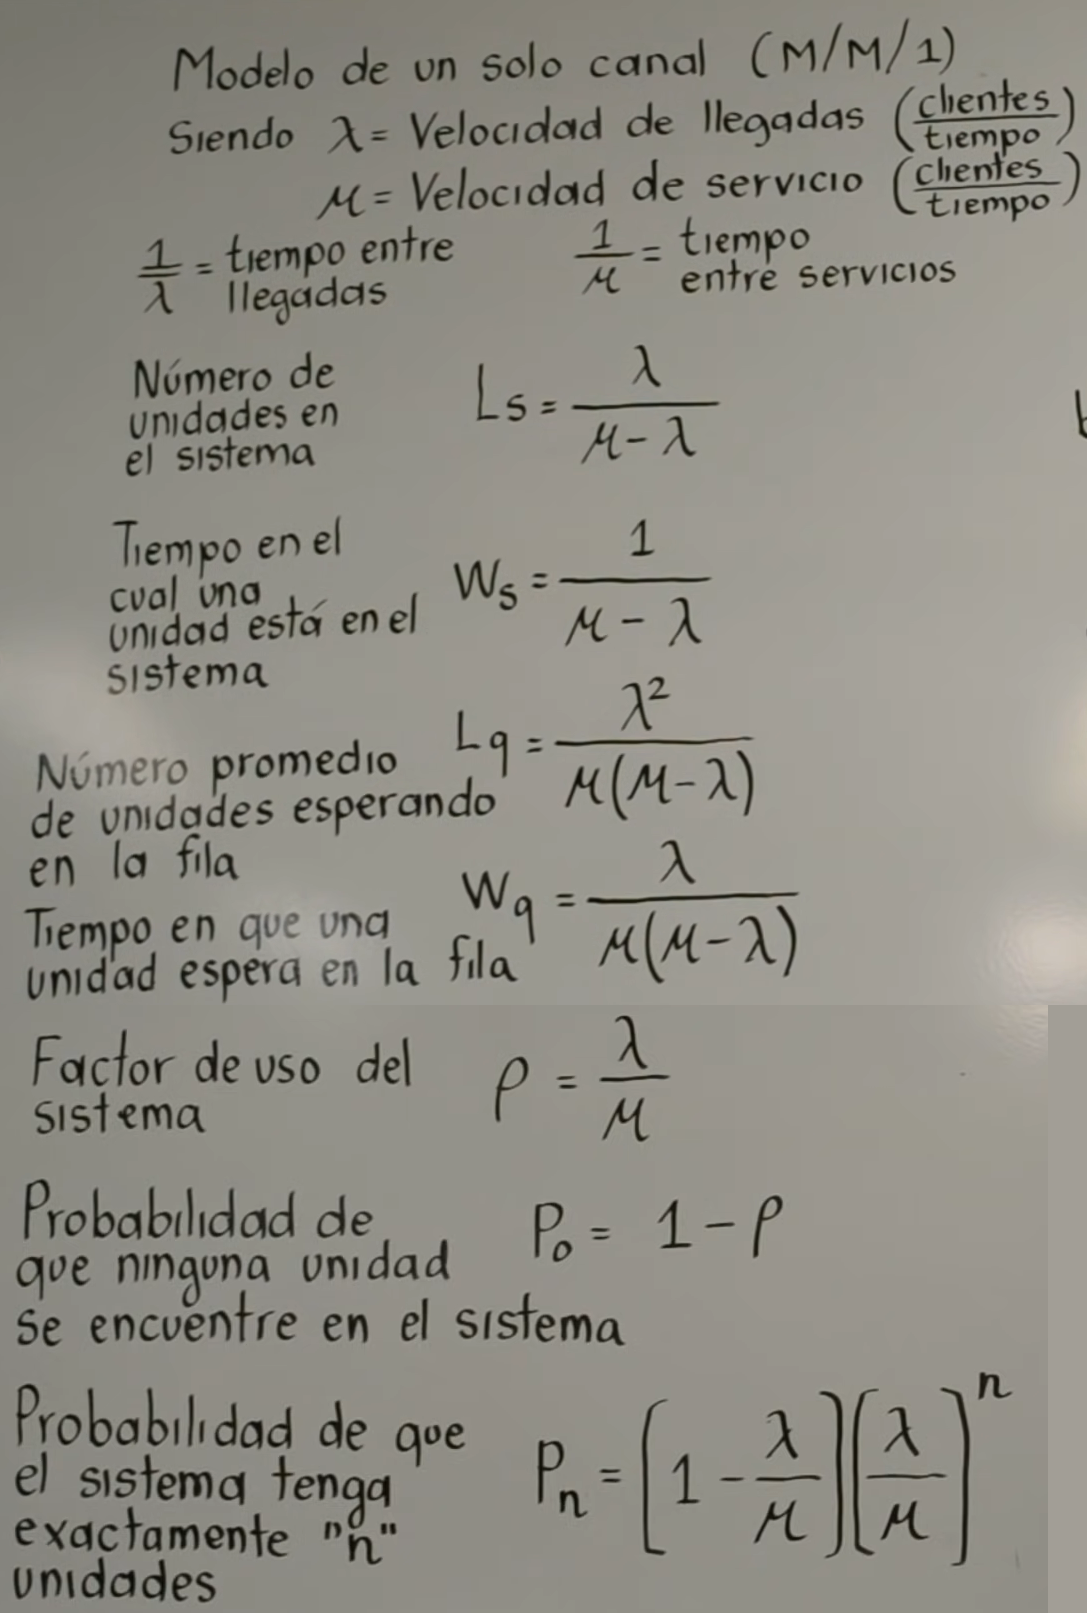 Modelo de un solo canal (M/M/1)
Siendo λ = Velocidad de llegadas (clientes/tiempo)
μ = Velocidad de servicio (clientes/tiempo)
1/λ = tiempo entre llegadas
1/μ = tiempo entre servicios
Número de
unidades en
el sistema
Ls = λ/(μ - λ)
Tiempo en el
cual una
unidad está en el
sistema
Ws = 1/(μ - λ)
Número promedio
de unidades esperando
en la fila
Lq = λ²/(μ(μ - λ))
Tiempo en que una
unidad espera en la fila
Wq = λ/(μ(μ - λ))
Factor de uso del
sistema
ρ = λ/μ
Probabilidad de
que ninguna unidad
se encuentre en el sistema
P₀ = 1 - ρ
Probabilidad de que
el sistema tenga
exactamente "n"
unidades
Pn = (1 - λ/μ)(λ/μ)ⁿ